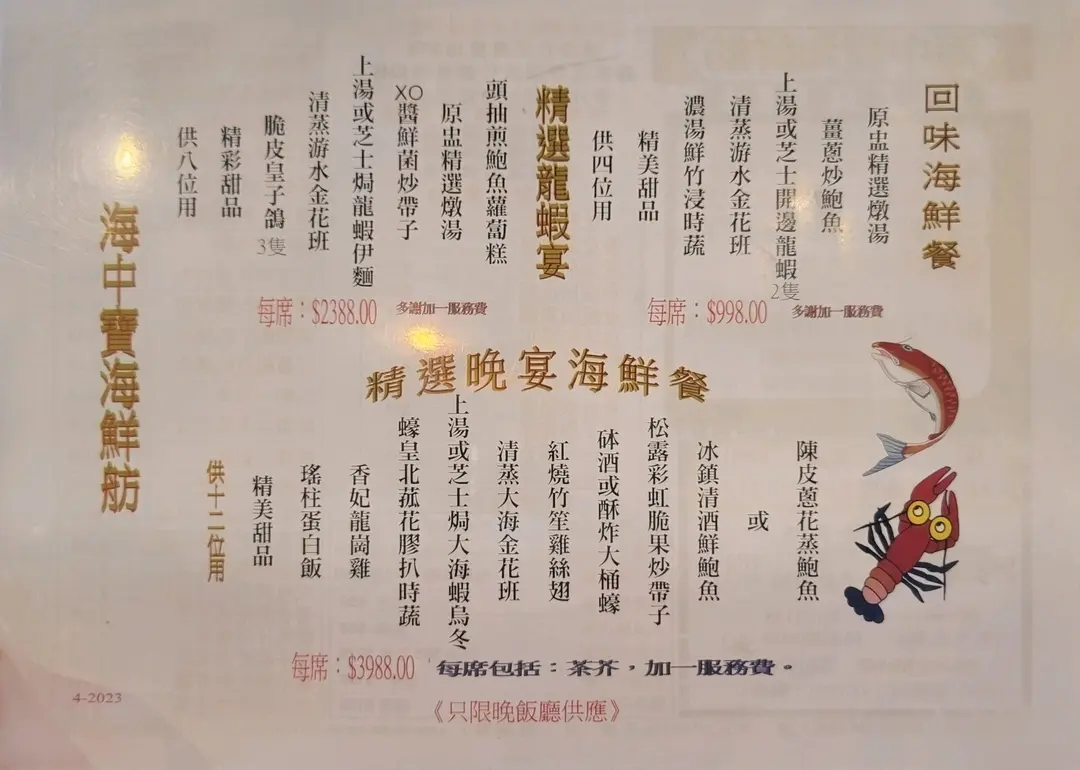 回味海鮮餐
原盅精選燉湯
薑蔥炒鮑魚
上湯或芝士開邊龍蝦2隻
清蒸游水金花班
濃湯鮮竹浸時蔬
精美甜品
供四位用
每席：$998.00
多謝加一服務費
精選龍蝦宴
頭抽煎鮑魚蘿蔔糕
原盅精選燉湯
XO醬鮮菌炒帶子
上湯或芝士焗龍蝦伊麵
清蒸游水金花班
脆皮皇子鴿3隻
精彩甜品
供八位用
每席：$2388.00
多謝加一服務費
海中寶海鮮舫
精選晚宴海鮮餐
陳皮蔥花蒸鮑魚
或
冰鎮清酒鮮鮑魚
松露彩虹脆果炒帶子
砵酒或酥炸大桶蠔
紅燒竹笙雞絲翅
清蒸大海金花班
上湯或芝士焗大海蝦烏冬
蠔皇北菰花膠扒時蔬
香妃龍崗雞
瑤柱蛋白飯
精美甜品
供十二位用
每席：$3988.00
每席包括：茶芥，加一服務費。
《只限晚飯廳供應》
4-2023